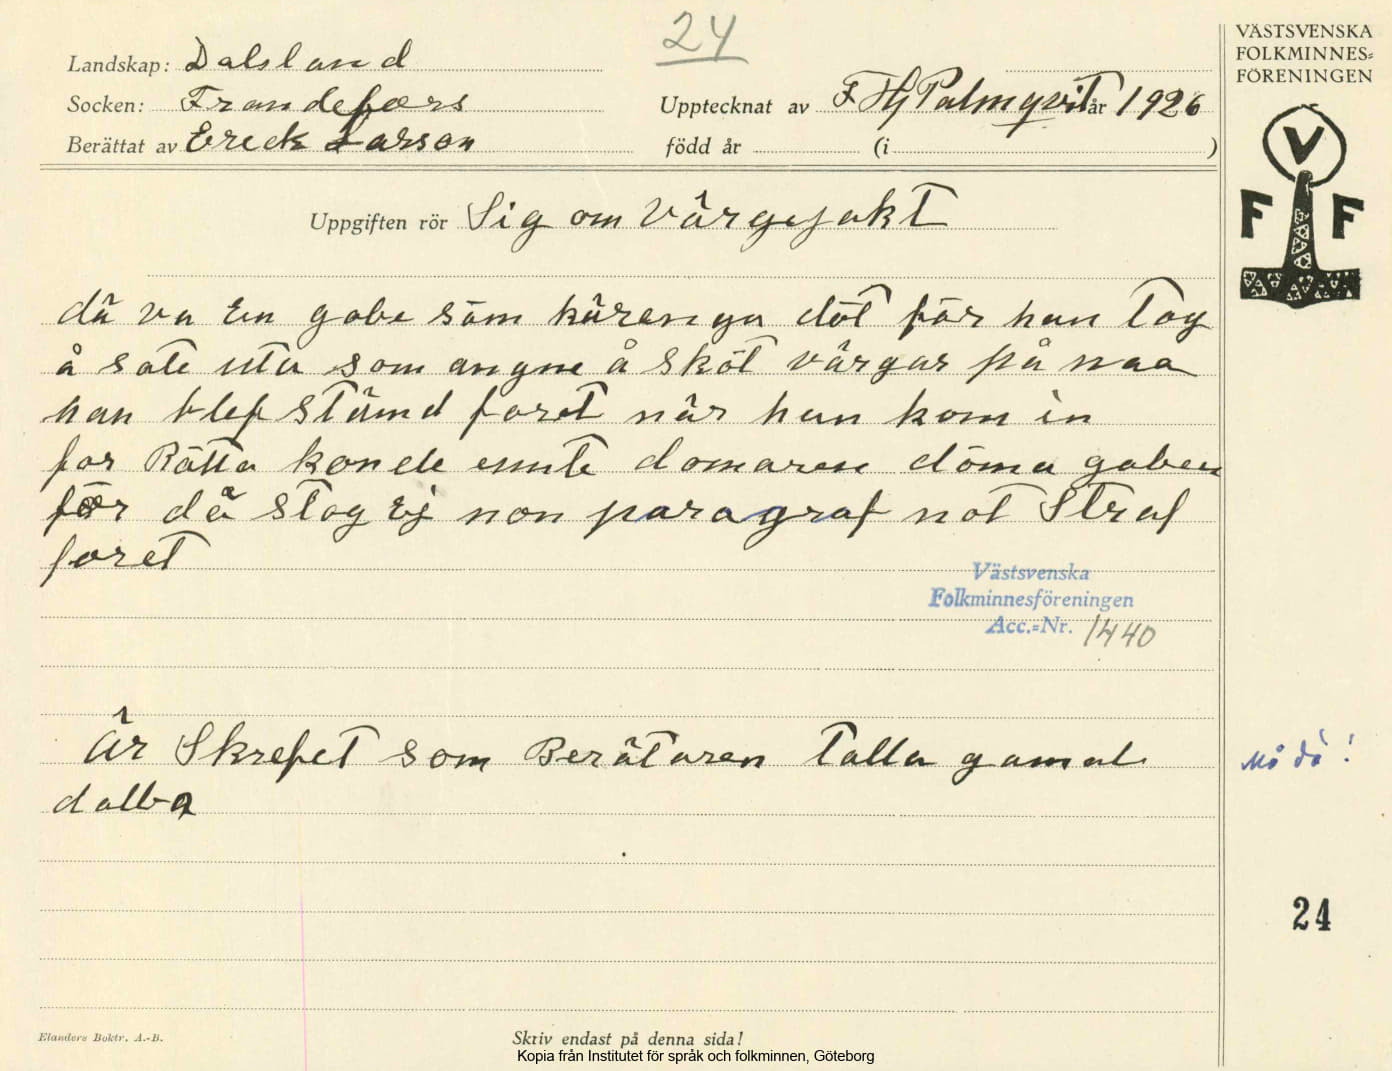 24
VÄSTSVENSKA
FOLKMINNES=
FÖRENINGEN
Landskap: Dalsland
Socken: Frandefors
Upptecknat av F Hj Palmqvist år 1926
Berättat av Ereck Larson
född år (i )
V
F F
Uppgiften rör Sig om Vårgejakt
då va En gobe söm kärenga döt för han Tog
å sate uta som angne å sköt vårgar på naa
han blef Stämd foret när han kom in
for Rätta konde ennte domaren döma goben
för då stog Ej non paragraf not Straf
foret
Västsvenska
Folkminnesföreningen
Acc.=Nr. 1440
Är Skrefet som Berätaren Talla gamal
dalbo
Må då!
24
Elanders Boktr. A.-B.
Skriv endast på denna sida!
Kopia från Institutet för språk och folkminnen, Göteborg